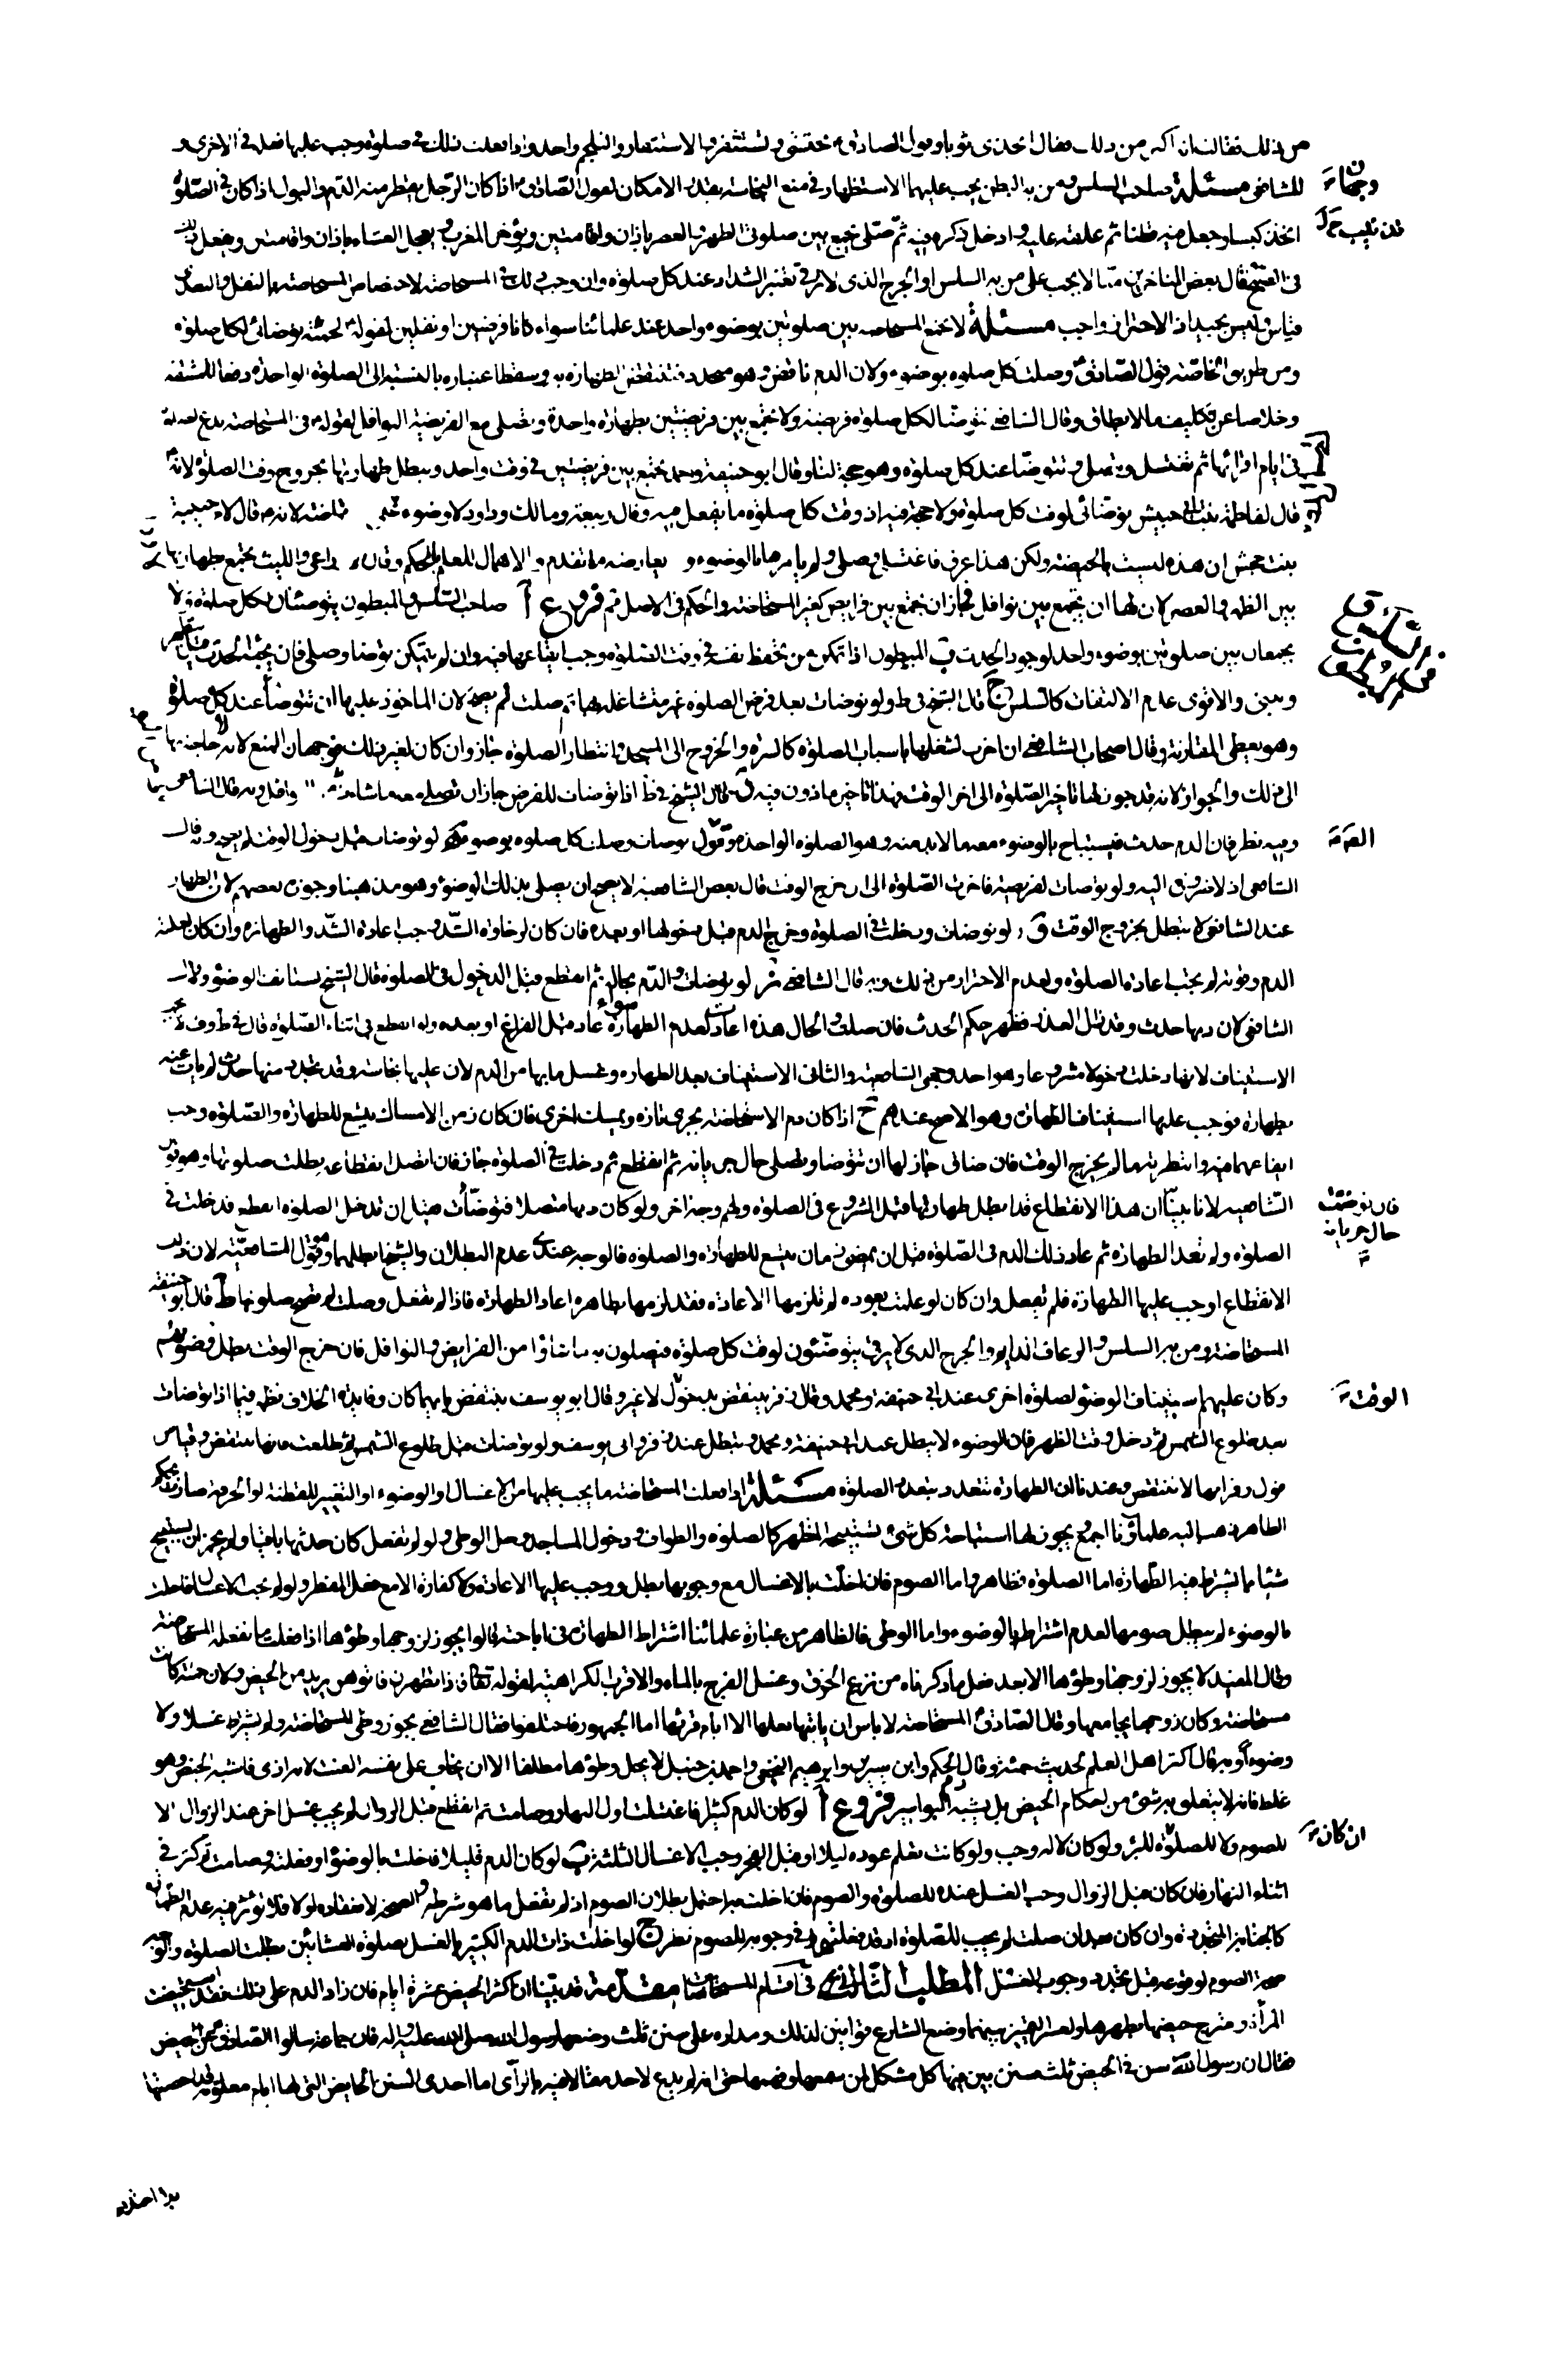 من ذلك فقالت انه اكثر من ذلك فقال اتخذي ثوبا وقول الصادق ع تحتشي وتستثفر والاستثفار والتلجم واحد واذا فعلت ذلك في صلوة وجب عليها فعله في الاخرى و
للشافعي وجهان مسئلة صاحب السلس ومن به البطن يجب عليهما الاستظهار في منع النجاسة بقدر الامكان لقول الصادق ع اذا كان الرجل يقطر منه الدم والبول اذا كان في الصلوة
اتخذ كيسا وجعل فيه قطنا ثم علقه عليه وادخل ذكره فيه ثم صلى يجمع بين صلوتي الظهر والعصر باذان واقامتين ويؤخر المغرب ويعجل العشاء باذان واقامتين ويفعل ذلك
في الصبح قال بعض المتاخرين منا لا يجب على من به السلس او الجرح الذي لا يرقى تغيير الشداد عند كل صلوة وان وجب ذلك في المستحاضة لاختصاص المستحاضة بالنقل والتعدي
قياس وليس بجيد اذ الاحتراز واجب مسئلة لا تجمع المستحاضة بين صلوتين بوضوء واحد عند علمائنا سواء كانا فرضين او نفلين لقوله ع لحمنة توضائي لكل صلوة
ومن طريق الخاصة قول الصادق ع وصلت كل صلوة بوضوء ولان الدم ناقض وهو متجدد فتنتقض الطهارة به ويسقط اعتباره بالنسبة الى الصلوة الواحدة دفعا للمشقة
وخلاصا عن تكليف ما لا يطاق وقال الشافعي تتوضا لكل صلوة فريضة ولا تجمع بين فريضتين بطهارة واحدة وتصلي مع الفريضة النوافل لقوله ع في المستحاضة تدع الصلوة
في ايام اقرائها ثم تغتسل وتصلي وتتوضا عند كل صلوة وهو حجة لنا وقال ابو حنيفة واحمد تجمع بين فريضتين في وقت واحد وتبطل طهارتها بخروج وقت الصلوة لانه ع
قال لفاطمة بنت ابي حبيش توضائي لوقت كل صلوة ولا حجة فيه اذ وقت كل صلوة ما يفعل فيه وقال ربيعة ومالك وداود لا وضوء على المستحاضة لانه ع قال لام حبيبة
بنت جحش ان هذه ليست بالحيضة ولكن هذا عرق فاغتسلي وصلي ولم يامرها بالوضوء ويعارضه ما تقدم والاهمال للعلم بالحكم وقال الاوزاعي والليث تجمع بطهارتها
بين الظهر والعصر لان لها ان تجمع بين نوافل فجاز ان تجمع بين فرايض كغير المستحاضة والحكم في الاصل ثم فروع آ صاحب السلس والمبطون يتوضئان لكل صلوة ولا
يجمعان بين صلوتين بوضوء واحد لوجود الحدث ب المبطون اذا تمكن من تحفظ نفسه في وقت الصلوة وجب ايقاعها فيه وان لم يتمكن توضا وصلى فان فجئه الحدث قيل يتطهر
ويبني والاقوى عدم الالتفات كالسلس ج قال الشيخ في ط ولو توضات بعد فرض الصلوة غير متشاغلة بها ثم صلت لم يصح لان الماخوذ عليها ان تتوضا عند كل صلوة
وهو يعطي المقارنة وقال اصحاب الشافعي ان اخرت لشغلها باسباب الصلوة كالسترة والخروج الى المسجد وانتظار الصلوة جاز وان كان لغير ذلك فوجهان المنع لانه لا حاجة بها
الى ذلك والجواز لانه قد جوز لها تاخير الصلوة الى اخر الوقت وهذا تاخير ماذون فيه د قال الشيخ في ط اذا توضات للفرض جاز ان تصلي معه ما شاءت من النوافل وبه قال الشافعي
وفيه نظر فان الدم حدث فيستباح بالوضوء معه ما لا بد منه وهو الصلوة الواحدة لقوله ع توضات وصلت كل صلوة بوضوء لو توضات قبل دخول الوقت لم يصح وبه قال
الشافعي اذ لا ضرورة اليه ولو توضات لفريضة فاخرت الصلوة الى ان خرج الوقت قال بعض الشافعية لا يصح ان يصلي بذلك الوضوء وهو مذهبنا وجوزه بعضهم لان الطهارة
عند الشافعي لا تبطل بخروج الوقت و لو توضات ودخلت في الصلوة وخرج الدم قبل دخولها او بعده فان كان لرخاوة الشد وجب اعادة الشد والطهارة وان كان لغلبة
الدم وقوته لم يجب اعادة الصلوة لعدم الاحتراز من ذلك وبه قال الشافعي ز لو توضات والدم بحاله ثم انقطع قبل الدخول في الصلوة قال الشيخ تستانف الوضوء وبه قال
الشافعي لان دمها حدث وقد زال العذر فظهر حكم الحدث فان صلت والحال هذه اعادت لعدم الطهارة سواء عاد قبل الفراغ او بعده ولو انقطع في اثناء الصلوة قال في ط وف لا يجب
الاستيناف لانها دخلت دخولا مشروعا وهو احد وجهي الشافعية والثاني الاستيناف بعد الطهارة وغسل ما بها من الدم لان عليها نجاسة وقد تجدد منها حدث لم يات عنه
بطهارة فوجب عليها استيناف الطهارة وهو الاصح عندهم ح اذا كان دم الاستحاضة يجري تارة ويمسك اخرى فان كان زمن الامساك يتسع للطهارة والصلوة وجب
ايقاعهما فيه وانتظرته ما لم يخرج الوقت فان ضاق جاز لها ان تتوضا وتصلي حال جريانه ثم انقطع ثم دخلت في الصلوة جاز فان اتصل انقطاعه بطلت صلوتها وهو قول
الشافعية لانا بينا ان هذا الانقطاع قد ابطل طهارتها قبل الشروع في الصلوة ولهم وجه اخر ولو كان دمها متصلا فتوضات قبل ان تدخل الصلوة انقطع فدخلت في
الصلوة ولم تعد الطهارة ثم عاد ذلك الدم في الصلوة قبل ان يمضي زمان يتسع للطهارة والصلوة فالوجه عندي عدم البطلان والشيخ ابطلها وهو قول الشافعية لان ذلك
الانقطاع اوجب عليها الطهارة فلم تفعل وان كان لو علمت بعوده لم تلزمها الاعادة فقد لزمها بظاهره اعادة الطهارة فاذا لم تفعل وصلت لم تصح صلوتها ط قال ابو حنيفة
المستحاضة ومن به السلس والرعاف الدايم والجرح الذي لا يرقى يتوضئون لوقت كل صلوة فيصلون به ما شاؤا من الفرايض والنوافل فان خرج الوقت بطل وضوئهم
وكان عليهم استيناف الوضوء لصلوة اخرى عند ابي حنيفة ومحمد وقال زفر ينتقض بدخول لا غير وقال ابو يوسف ينتقض بايهما كان وفايدة الخلاف تظهر فيما اذا توضات
بعد طلوع الشمس ثم دخل وقت الظهر فان الوضوء لا يبطل عند ابي حنيفة ومحمد ويبطل عند زفر وابي يوسف ولو توضات قبل طلوع الشمس ثم طلعت فانها تنتقض وقياس
قول زفر انها لا تنتقض وعندنا ان الطهارة تتعدد بتعدد الصلوة مسئلة اذا فعلت المستحاضة ما يجب عليها من الاغسال والوضوء او التغيير للقطنة او الخرقة صارت بحكم
الطاهر ذهب اليه علماؤنا اجمع يجوز لها استباحة كل شئ تستبيحه الطاهر كالصلوة والطواف ودخول المساجد وحل الوطي ولو لم تفعل كان حدثها باقيا ولم يجز ان تستبيح
شيئا مما يشترط فيه الطهارة اما الصلوة فظاهر واما الصوم فان اخلت بالاغسال مع وجوبها بطل ووجب عليها الاعادة ولا كفارة الا مع فعل المفطر ولو لم يجب الاغسال فاخلت
بالوضوء لم يبطل صومها لعدم اشتراطه بالوضوء واما الوطي فالظاهر من عبارة علمائنا اشتراط الطهارة في اباحته قالوا يجوز لزوجها وطؤها اذا فعلت ما تفعله المستحاضة
وقال المفيد لا يجوز لزوجها وطؤها الا بعد فعل ما ذكرناه من نزع الخرق وغسل الفرج بالماء والاقرب الكراهية لقوله تعالى فاذا تطهرن فاتوهن يريد من الحيض ولان حمنة كانت
مستحاضة وكان زوجها يجامعها وقال الصادق ع المستحاضة لا باس ان ياتيها بعلها الا ايام قرئها اما الجمهور فاختلفوا فقال الشافعي يجوز وطي المستحاضة ولم يشترط غسلا ولا
وضوءا وبه قال اكثر اهل العلم لحديث حمنة وقال الحكم وابن سيرين وابرهيم النخعي واحمد بن حنبل لا يحل وطؤها مطلقا الا ان يخاف على نفسه العنت لانه اذى فاشبه الحيض وهو
غلط فانه لا يتعلق به شئ من احكام الحيض بل يشبه دم البواسير فروع آ لو كان الدم كثيرا فاغتسلت اول النهار وصامت ثم انقطع قبل الزوال لم يجب غسل اخر عند الزوال لا
للصوم ولا للصلوة ان كان للبرء ولو كان لا له وجب ولو كانت تعلم عوده ليلا او قبل الفجر وجب الاغسال الثلثة ب لو كان الدم قليلا فاخلت بالوضوء او فعلته وصامت ثم كثر في
اثناء النهار فان كان قبل الزوال وجب الغسل عنده للصلوة والصوم فان اخلت به احتمل بطلان الصوم اذ لم تفعل ما هو شرطه والصحة لانعقاده اولا فلا تؤثر فيه عدم الطهارة
كالجنابة المتجددة وان كان بعد ان صلت لم يجب للصلوة اذ قد فعلتها وفي وجوبه للصوم نظر ج لو اخلت ذات الدم الكثير بالغسل لصلوة العشائين بطلت الصلوة والوجه
صحة الصوم لوقوعه قبل تجدد وجوب الغسل المطلب الثاني في اقسام المستحاضات مقدمة قد بينا ان اكثر الحيض عشرة ايام فان زاد الدم على ذلك فقد استحيضت
المرأة وامتزج حيضها بطهرها ولعسر التمييز بينهما وضع الشارع قوانين لذلك ومداره على سنن ثلث وضعها رسول الله صلى الله عليه واله فان جماعة سالوا الصادق ع عن الحيض
فقال ان رسول الله ص سن في الحيض ثلث سنن بين فيها كل مشكل لمن سمعها وفهمها حتى انه لم يدع لاحد مقالا فيه بالرأي اما احدى السنن الحايض التي لها ايام معلومة قد احصتها
فان توضات
حال جريانه
الوقت
ان كان